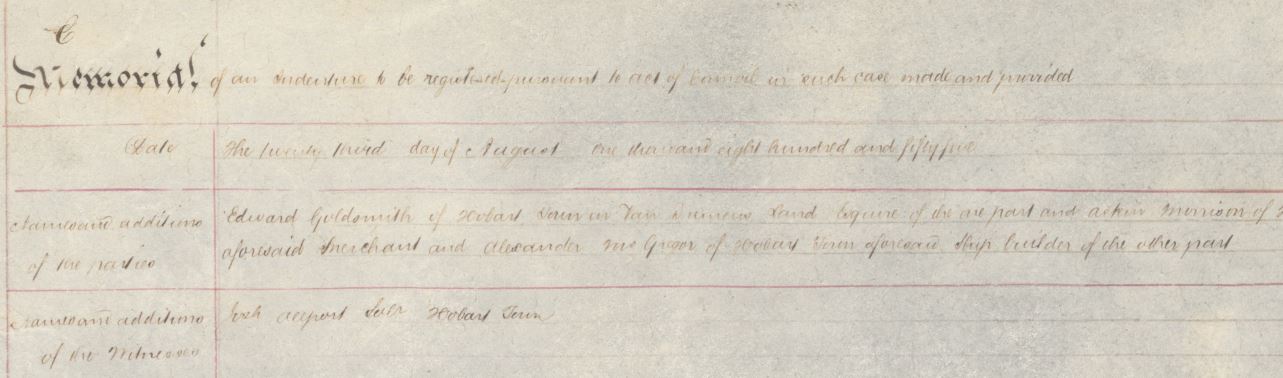 C
Memorial of an Indenture to be registered pursuant to act of Council in such case made and provided
Date The twenty third day of August one thousand eight hundred and fifty five
Names and additions Edward Goldsmith of Hobart Town in Van Diemens Land Esquire of the one part and Askin Morrison of
of the parties aforesaid Merchant and Alexander McGregor of Hobart Town aforesaid Ship builder of the other part
Names and additions Josh Allport Solr Hobart Town
of the Witnesses